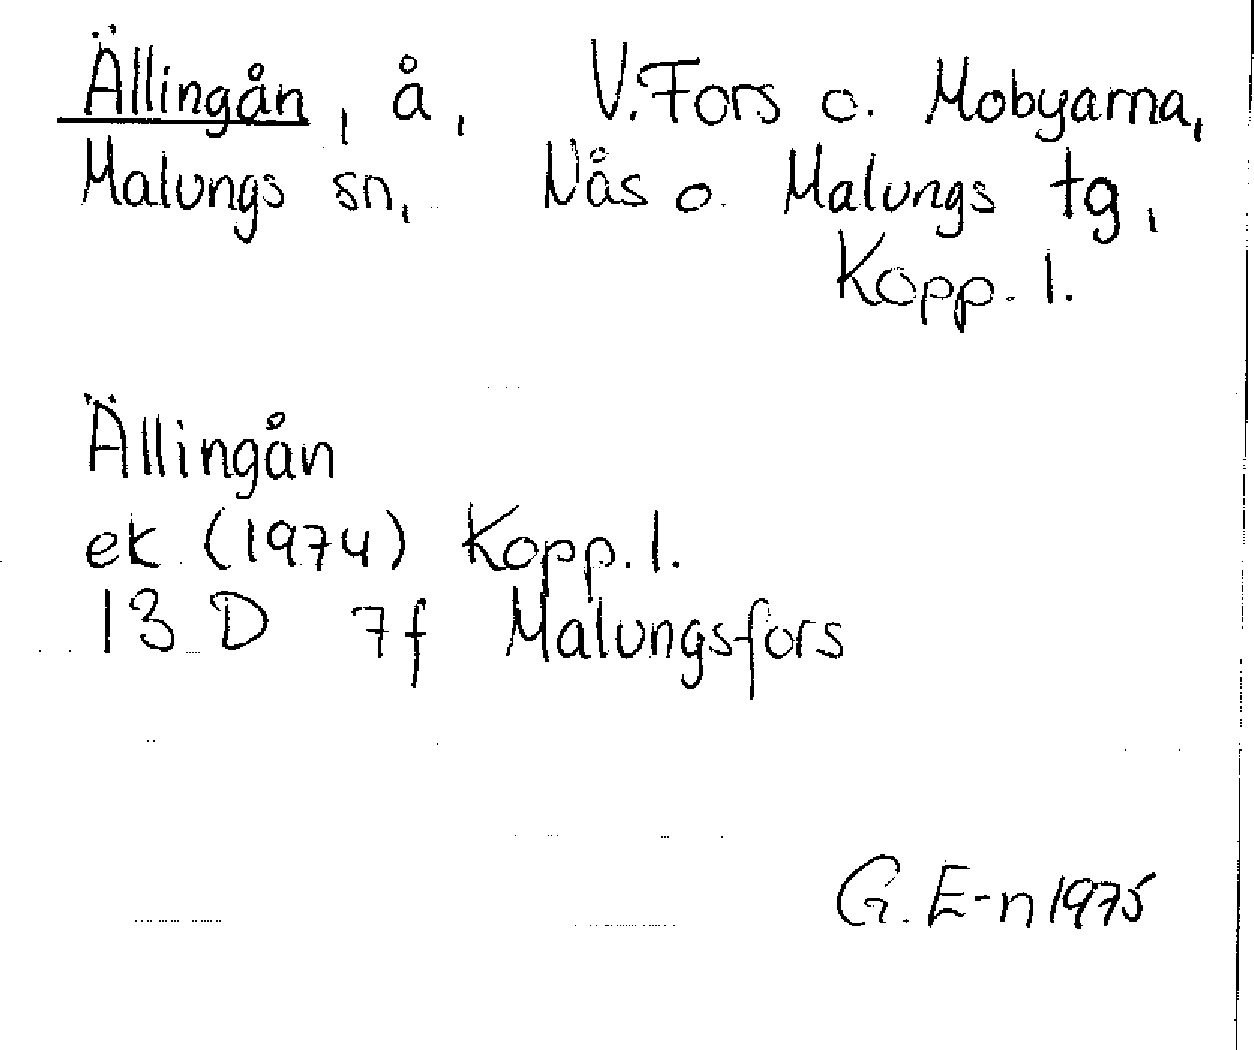 Ällingån, å, V. Fors o. Mobyarna,
Malungs sn, Nås o. Malungs tg,
Kopp. l.
Ällingån
ek (1974) Kopp. l.
13 D 7f Malungsfors
G. E-n 1975